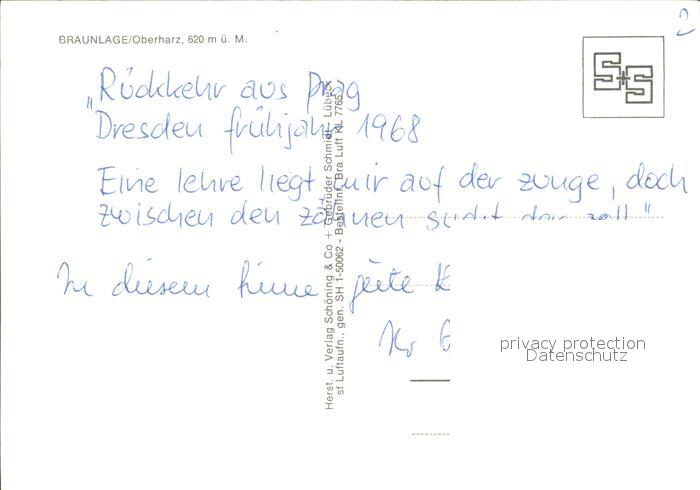 2
BRAUNLAGE/Oberharz, 620 m ü. M.
S+S
„Rückkehr aus Prag
Dresden frühjahr 1968
Eine lehre liegt mir auf der zunge, doch
zwischen den zähnen sucht der zoll"
In diesem Sinne gute
Ihr
Herst. u. Verlag Schöning & Co + Gebrüder Schmidt, Lübeck
sf Luftaufn., gen. SH 1-50062 - Bestellnr. Bra Luft KL 7765
privacy protection
Datenschutz